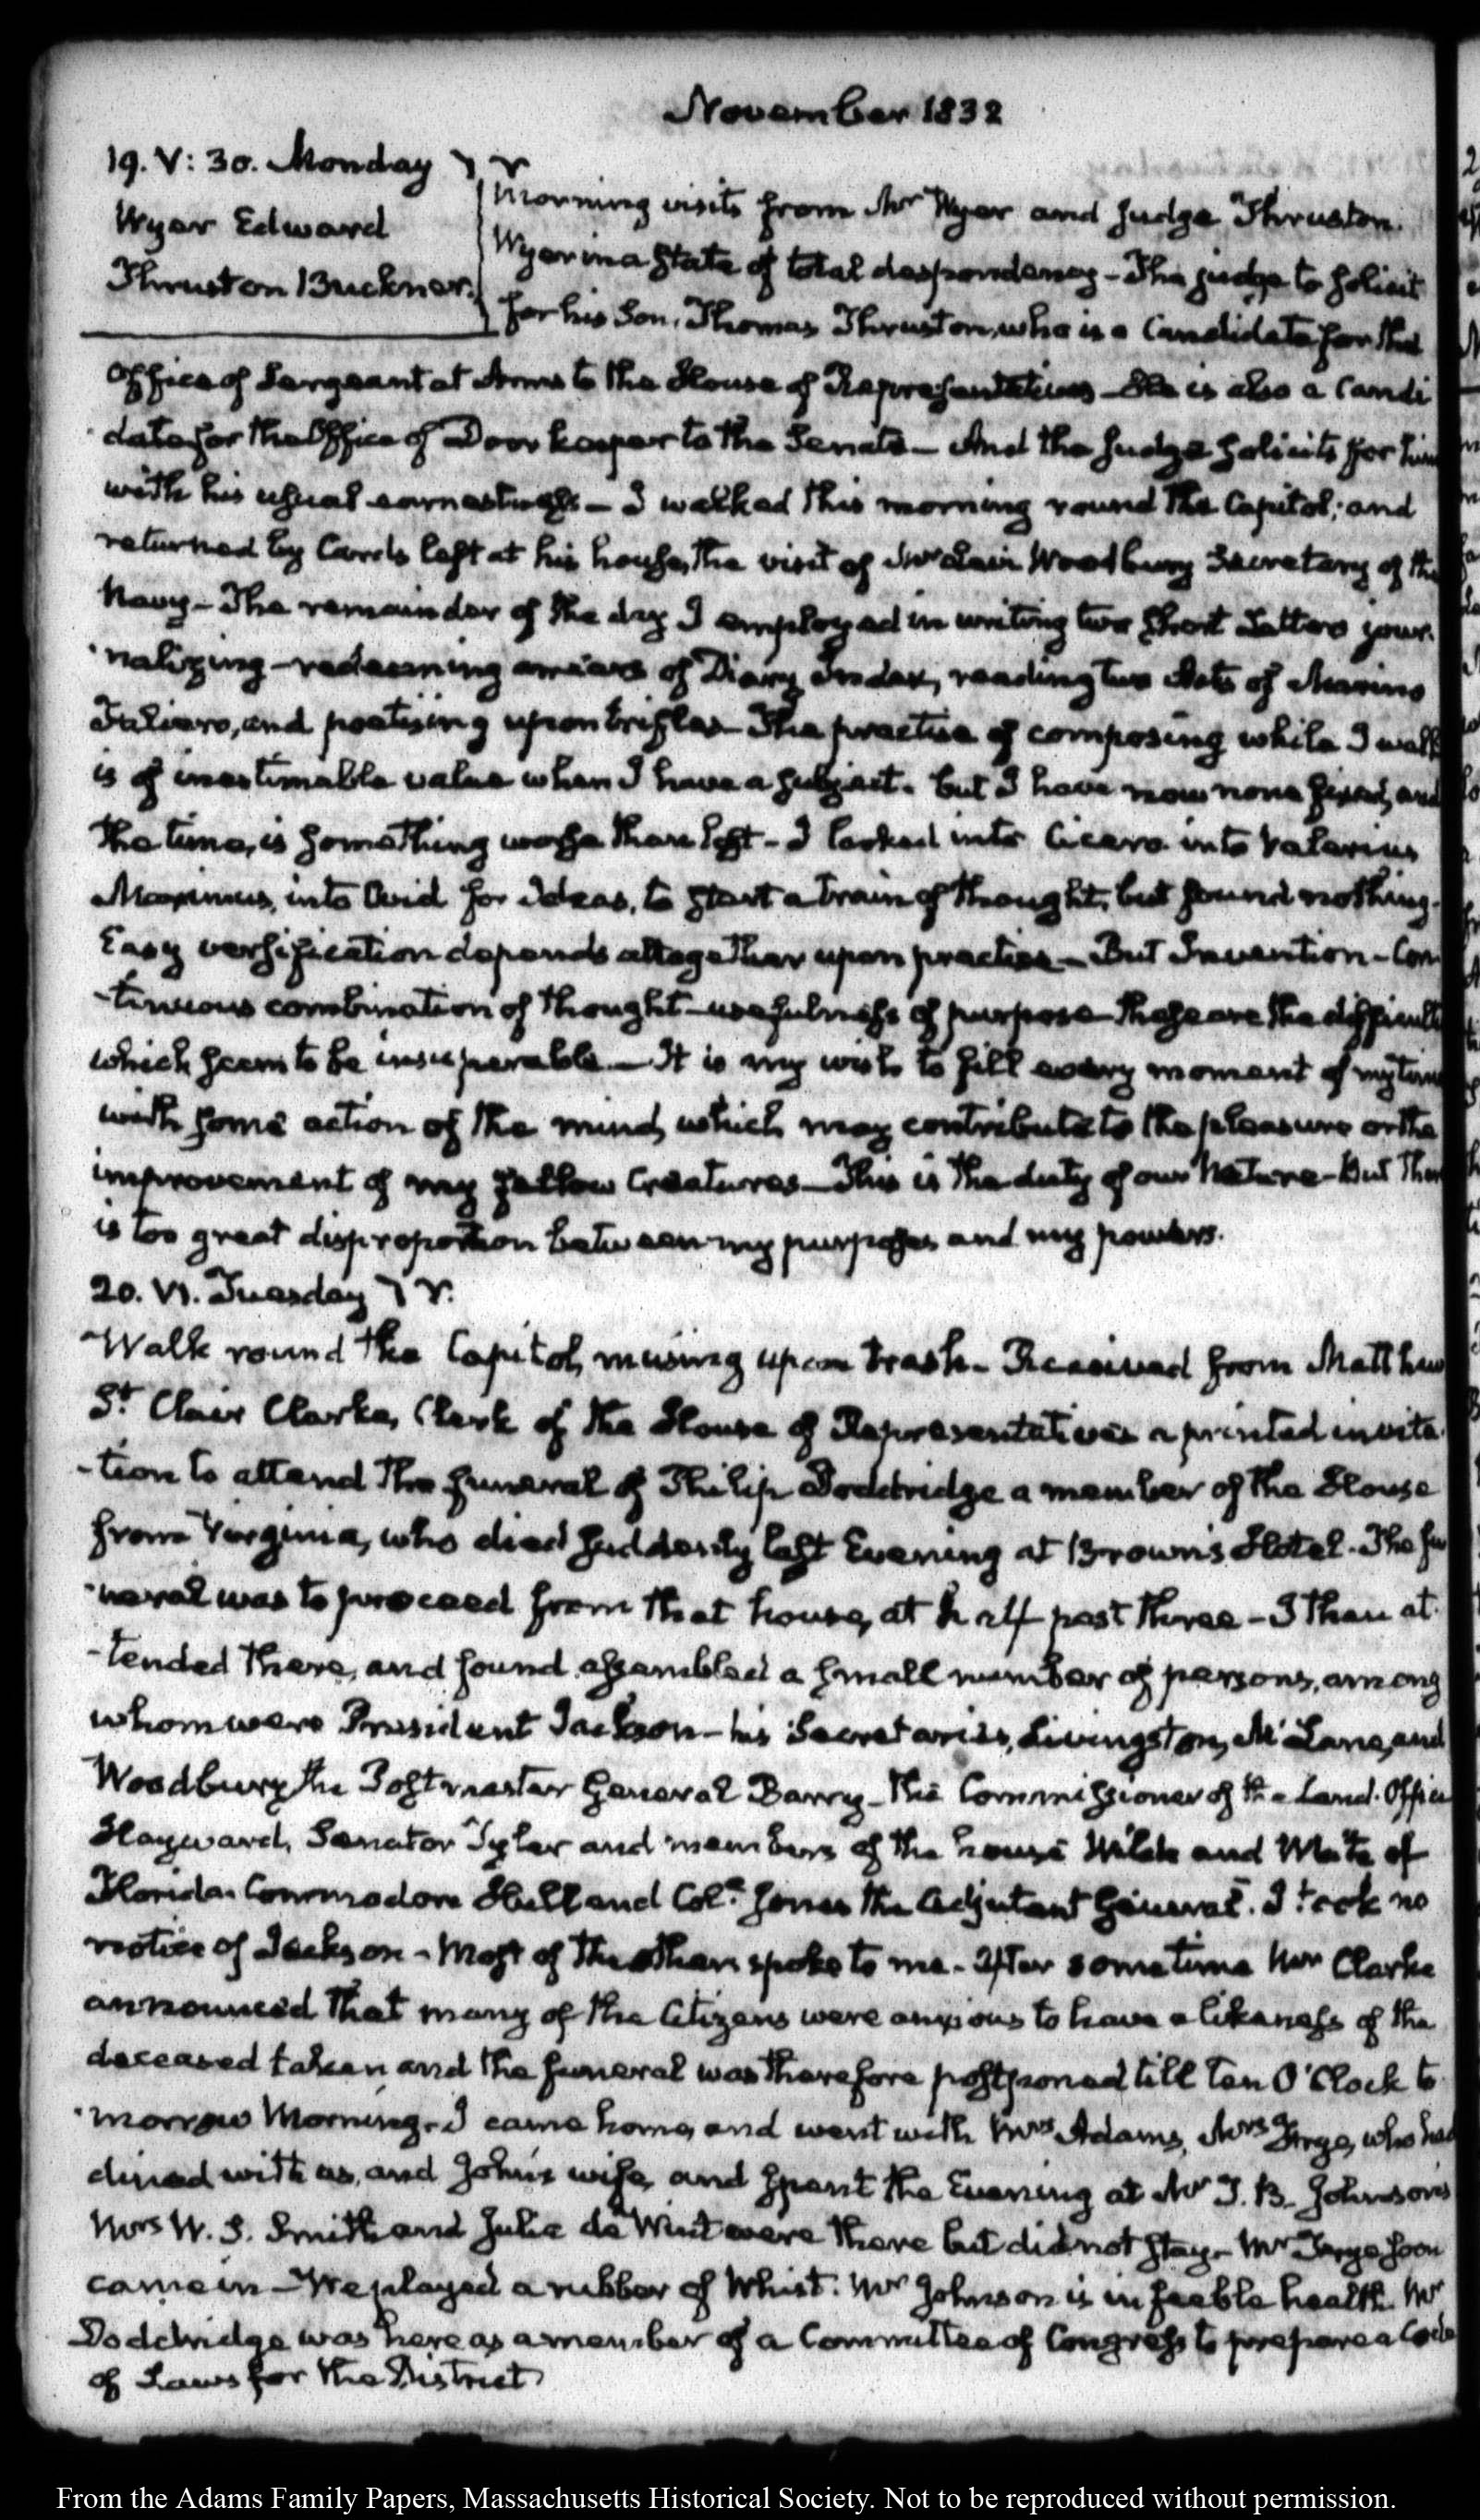 November 1832
19. V: 30. Monday
Wyer Edward
Thruston Buckner.
Morning visits from Mr Wyer and Judge Thruston.
Wyer in a state of total despondency - The judge to solicit
for his Son, Thomas Thruston, who is a Candidate for the
Office of Sergeant at Arms to the House of Representatives - He is also a Candi
date for the Office of Door keeper to the Senate - And the Judge solicits for him
with his usual earnestness - I walked this morning round the Capitol; and
returned by Cards left at his house, the visit of Mr Levi Woodbury Secretary of the
Navy - The remainder of the day I employed in writing two short Letters jour-
nalizing - redeeming arrears of Diary Index, reading two Acts of Marino
Faliero, and poetising upon trifles - The practice of composing while I walk
is of inestimable value when I have a subject. but I have now none fixed, and
the time, is something worse than lost - I looked into Cicero into Valerius
Maximus, into Ovid for ideas, to start a train of thought, but found nothing.
Easy versification depends altogether upon practice - But Invention - Con
-tinuous combination of thought - usefulness of purpose - these are the
which seem to be insuperable - It is my wish to fill every moment of my time
with some action of the mind, which may contribute to the pleasure or the
improvement of my fellow Creatures - This is the duty of our Nature - But there
is too great disproportion between my purposes and my powers.
20. VI. Tuesday
Walk round the Capitol, musing upon trash - Received from Matthew
St. Clair Clarke, Clerk of the House of Representatives a printed invita-
-tion to attend the funeral of Philip Doddridge a member of the House
from Virginia, who died suddenly last Evening at Brown's Hotel. The fu
-neral was to proceed from that house, at half past three - I then at-
-tended there, and found assembled a small number of persons, among
whom were President Jackson - his Secretaries, Livingston, McLane, and
Woodbury the Postmaster General Barry - the Commissioner of the Land-Office
Hayward, Senator Tyler and members of the house Wilde and White of
Florida. Commodore Hull and Coll. Jones the Adjutant General. I took no
notice of Jackson - Most of the others spoke to me - After some time Mr Clarke
announced that many of the Citizens were anxious to have a likeness of the
deceased taken and the funeral was therefore postponed till ten O'Clock to-
-morrow Morning. I came home, and went with Mrs Adams, Mrs Frye, who had
dined with us, and John's wife, and spent the Evening at Mr T. B. Johnson's
Mrs W. S. Smith and Julia de Wint were there but did not stay - Mr Frye soon
came in - We played a rubber of Whist. Mr Johnson is in feeble health. Mr
Doddridge was here as a member of a Committee of Congress to prepare a Code
of Laws for the District
From the Adams Family Papers, Massachusetts Historical Society. Not to be reproduced without permission.